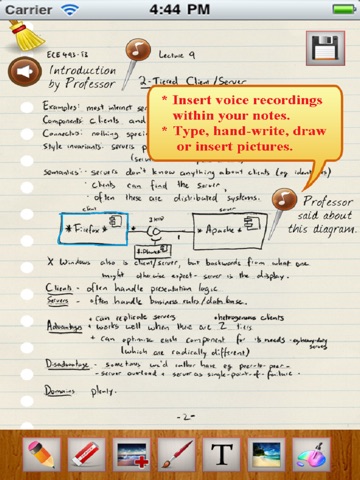 Carrier 4:44 PM
ECE 493-T3 Lecture 9
Introduction
by Professor
2-Tiered Client/Server
Examples: most internet ser
Components: clients and
Connector: nothing speci
Style invariants: servers p
(server
* Insert voice recordings
within your notes.
* Type, hand-write, draw
or insert pictures.
semantics: servers don't know anything about clients (eg. identities)
· clients can find the server,
· often these are distributed systems.
client server
* Firefox * * Apache *
Professor
said about
this diagram.
X Windows also is client/server, but backwards from what one
might otherwise expect - server is the display.
Clients - often handle presentation logic
Servers - often handle business rules/database.
Advantages + can replicate servers + heterogenous clients
+ works well when there are 2 tiers
+ can optimize each component for its needs - eg heavy-duty
servers
(which are radically different)
Disadvantage - sometimes we'd rather have eg peer-to-peer
- server overload + server as single-point-of-failure.
Domains plenty.
-2-
T